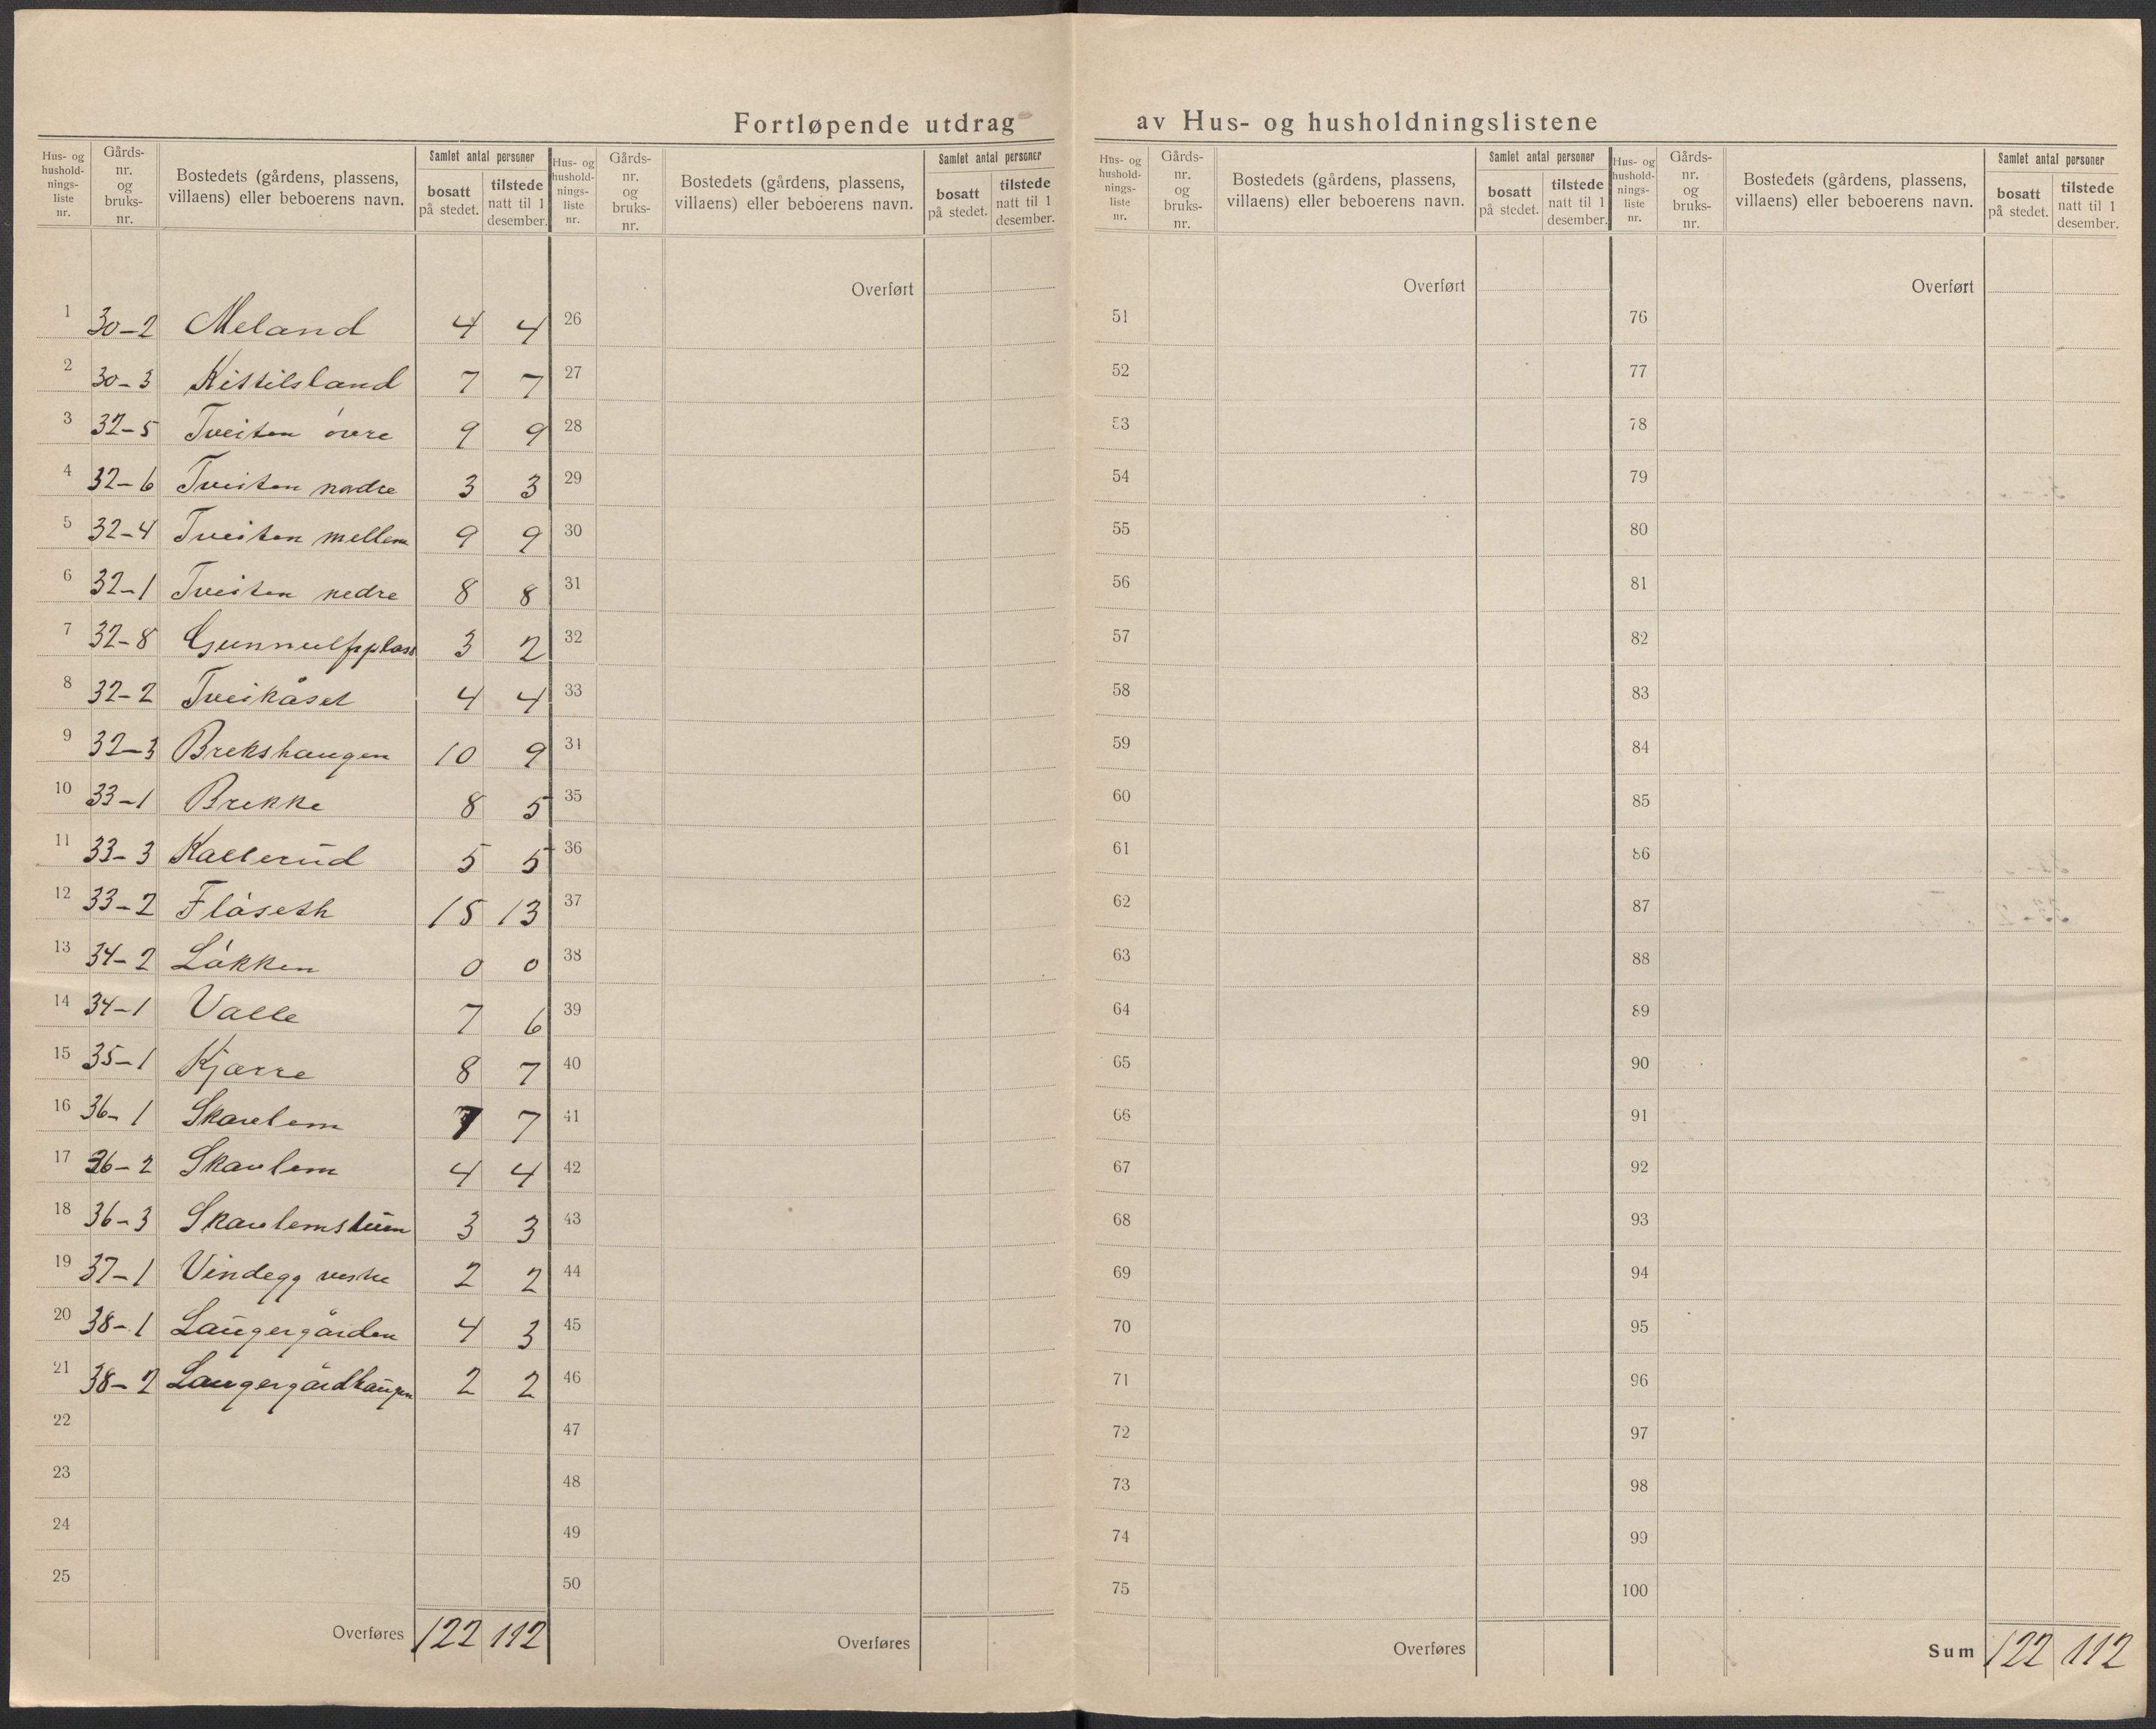 Fortløpende utdrag av Hus- og husholdningslistene
Hus- og hushold-nings-liste nr. Gårds-nr. og bruks-nr. Bostedets (gårdens, plassens, villaens) eller beboerens navn. Samlet antal personer bosatt på stedet. tilstede natt til 1 desember.
1 30-2 Meland 4 4
2 30-3 Kittilsland 7 7
3 32-5 Tveiten övre 9 9
4 32-6 Tveiten nordre 3 3
5 32-4 Tveiten mellem 9 9
6 32-1 Tveiten nedre 8 8
7 32-8 Gunnulfsplass 3 2
8 32-2 Tveitåset 4 4
9 32-3 Brekshaugen 10 9
10 33-1 Brekke 8 5
11 33-3 Kallerud 5 5
12 33-2 Flåseth 15 13
13 34-2 Lökken 0 0
14 34-1 Valle 7 6
15 35-1 Kjærre 8 7
16 36-1 Skavlem 7 7
17 36-2 Skavlem 4 4
18 36-3 Skavlemstuen 3 3
19 37-1 Vindegg vestre 2 2
20 38-1 Laugergården 4 3
21 38-2 Laugergårdhaugen 2 2
22
23
24
25
Overføres 122 112
Hus- og hushold-nings-liste nr. Gårds-nr. og bruks-nr. Bostedets (gårdens, plassens, villaens) eller beboerens navn. Samlet antal personer bosatt på stedet. tilstede natt til 1 desember.
Overført
26
27
28
29
30
31
32
33
34
35
36
37
38
39
40
41
42
43
44
45
46
47
48
49
50
Overføres
Hus- og hushold-nings-liste nr. Gårds-nr. og bruks-nr. Bostedets (gårdens, plassens, villaens) eller beboerens navn. Samlet antal personer bosatt på stedet. tilstede natt til 1 desember.
Overført
51
52
53
54
55
56
57
58
59
60
61
62
63
64
65
66
67
68
69
70
71
72
73
74
75
Overføres
Hus- og hushold-nings-liste nr. Gårds-nr. og bruks-nr. Bostedets (gårdens, plassens, villaens) eller beboerens navn. Samlet antal personer bosatt på stedet. tilstede natt til 1 desember.
Overført
76
77
78
79
80
81
82
83
84
85
86
87
88
89
90
91
92
93
94
95
96
97
98
99
100
Sum 122 112